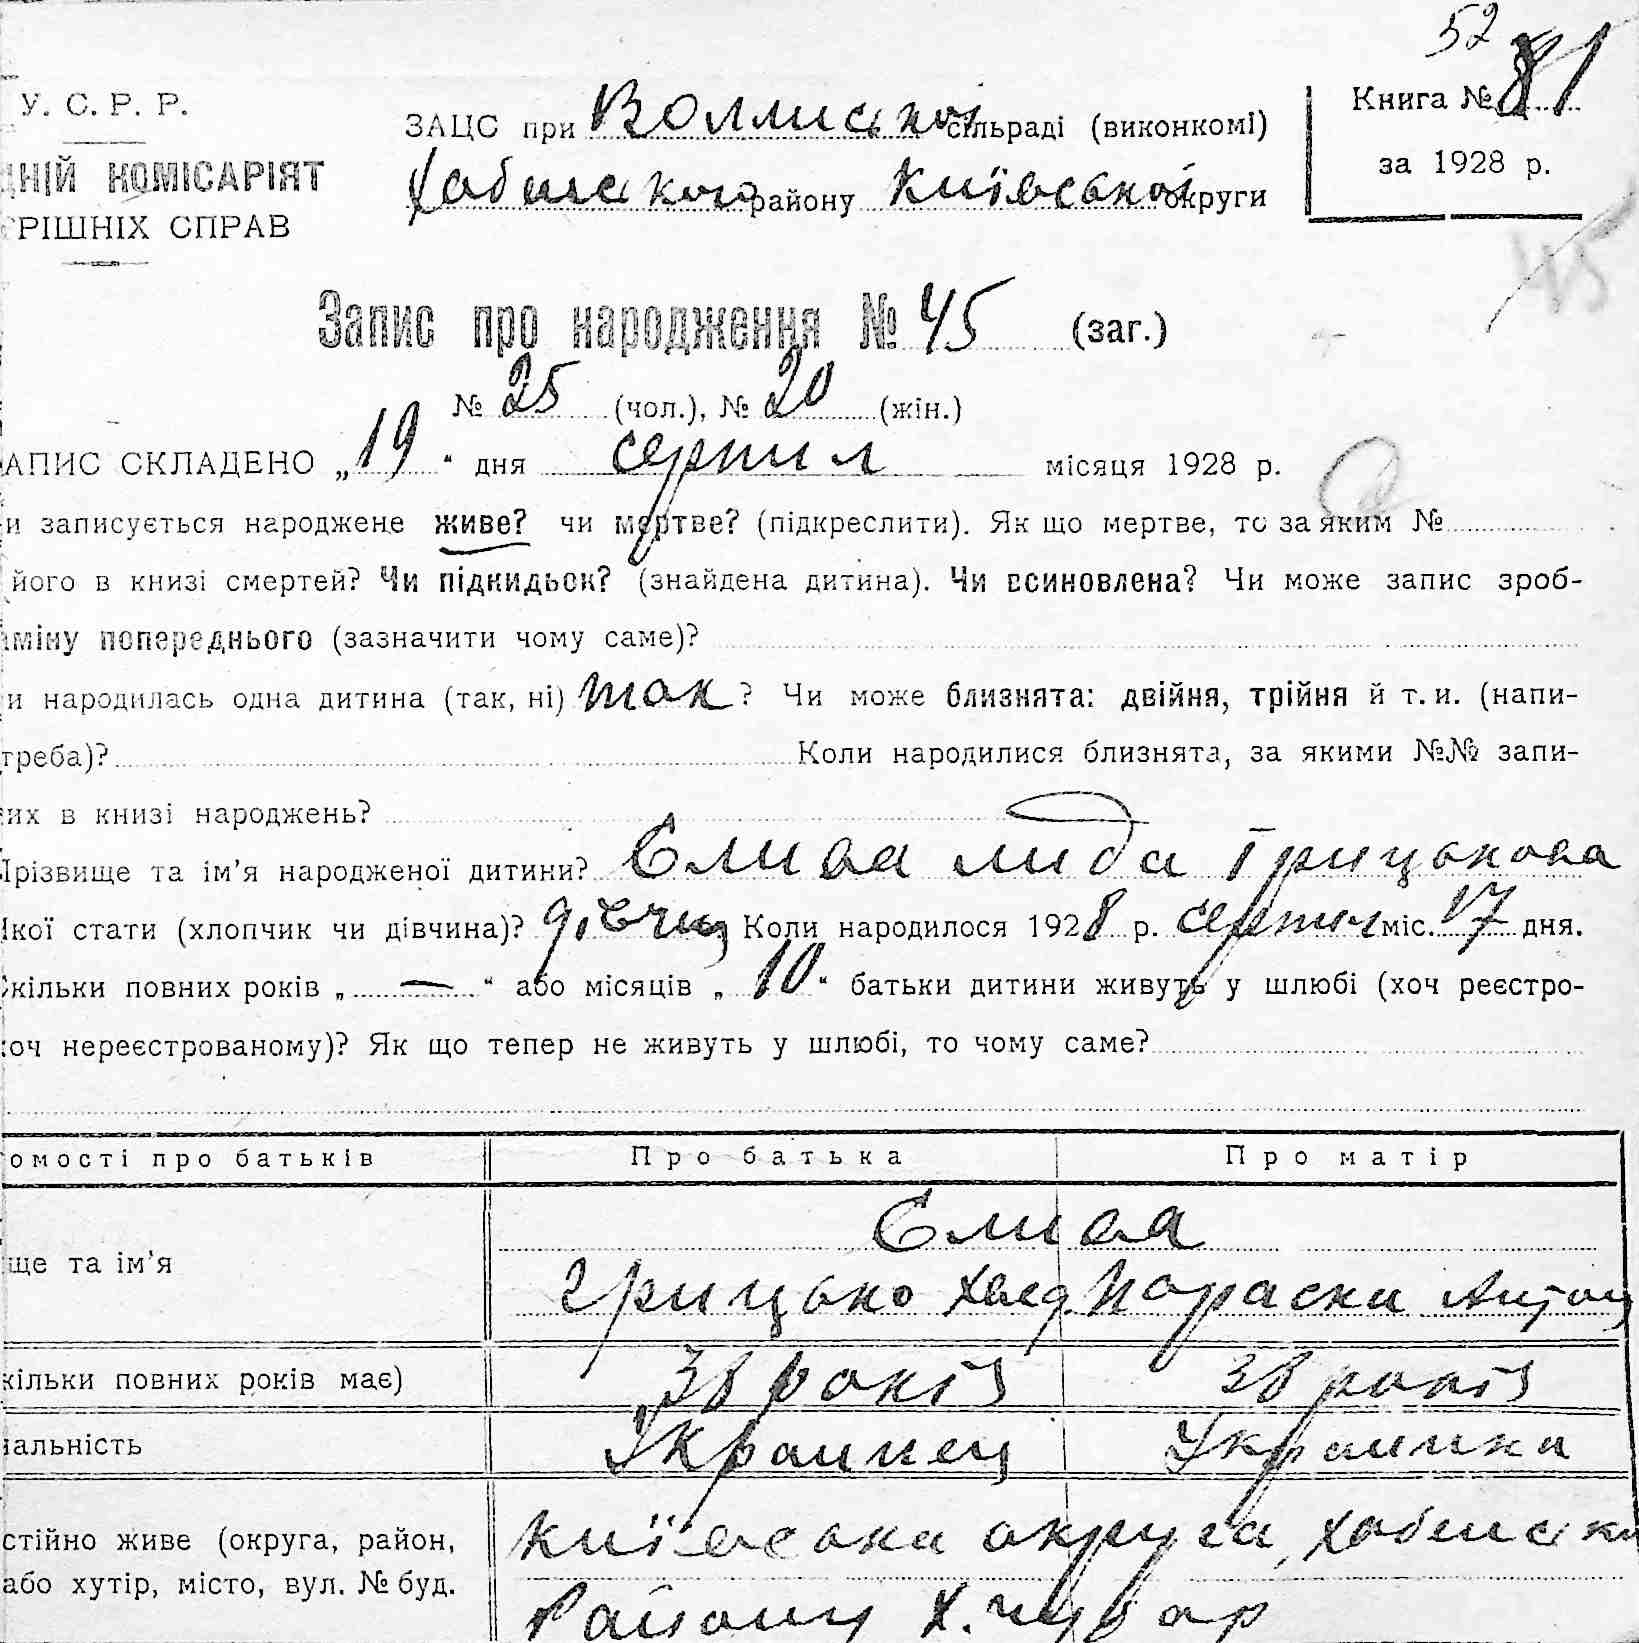 52
У. С. Р. Р.
ЗАЦС при сільраді (виконкомі)
Книга № 81
КОМІСАРІЯТ
району Київської округи
за 1928 р.
СПРАВ
45
Запис про народження № 45 (заг.)
№ 25 (чол.), № 20 (жін.)
АПИС СКЛАДЕНО „19“ дня серпня місяця 1928 р.
и записується народжене живе? чи мертве? (підкреслити). Як що мертве, то за яким №
його в книзі смертей? Чи підкидьок? (знайдена дитина). Чи всиновлена? Чи може запис зроб-
аміну попереднього (зазначити чому саме)?
и народилась одна дитина (так, ні) так? Чи може близнята: двійня, трійня й т. и. (напи-
треба)? Коли народилися близнята, за якими №№ запи-
их в книзі народжень?
Прізвище та ім'я народженої дитини? Єлива лида Грицькова
Якої стати (хлопчик чи дівчина)? дівчин Коли народилося 1928 р. серпня міс. 17 дня.
Скільки повних років „—“ або місяців „10“ батьки дитини живуть у шлюбі (хоч реєстро-
хоч нереєстрованому)? Як що тепер не живуть у шлюбі, то чому саме?
омості про батьків Про батька Про матір
Єлива
ще та ім'я
Грицько Хвед. Параски Антон
кільки повних років має) 38 років 38 років
альність Украинец Украинка
стійно живе (округа, район, Київська округа,
або хутір, місто, вул. № буд. Району Х.